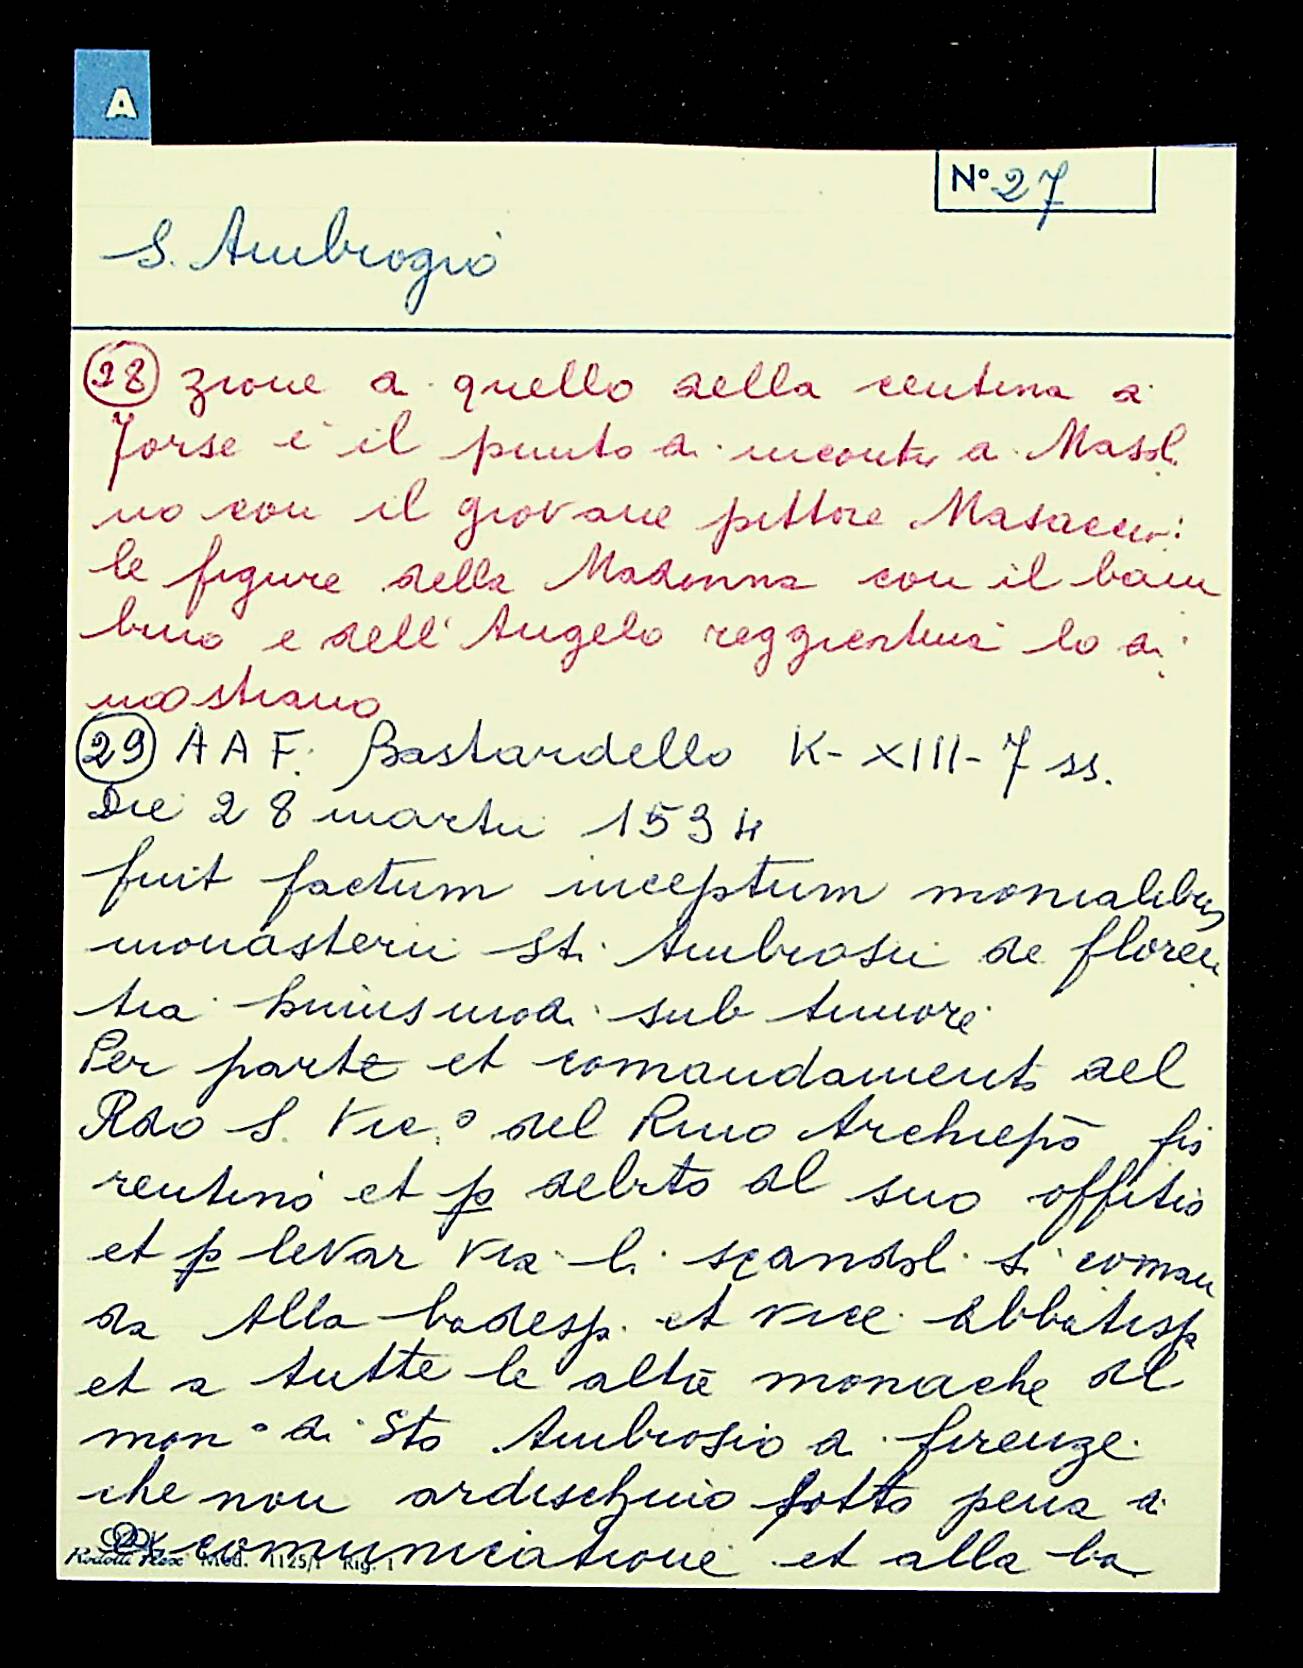 A
N° 27
S. Ambrogio
28 zione a quello della centina di
forse è il punto di incontro di Masol
no con il giovane pittore Masaccio:
le figure della Madonna con il bam
bino e dell' Angelo reggicortina lo di
mostrano
29 AAF. Bastardello K-XIII-7 ss.
Die 28 martii 1594
fuit factum inceptum monialibus
monasterii Sti Ambrosii de floren
tia huiusmodi sub tenore
Per parte et comandamento del
Rdo S. Vic.° del Rmo Archiepō fio
rentino et p debito del suo offitio
et p levar via li scandoli si coman
da alla badessa et vice abbatissa
et a tutte le altre monache del
mon° di Sto Ambrosio di firenze
che non ardischino sotto pena di
excomunicatione et alla ba
Mod. 1125/1 Rig. 1